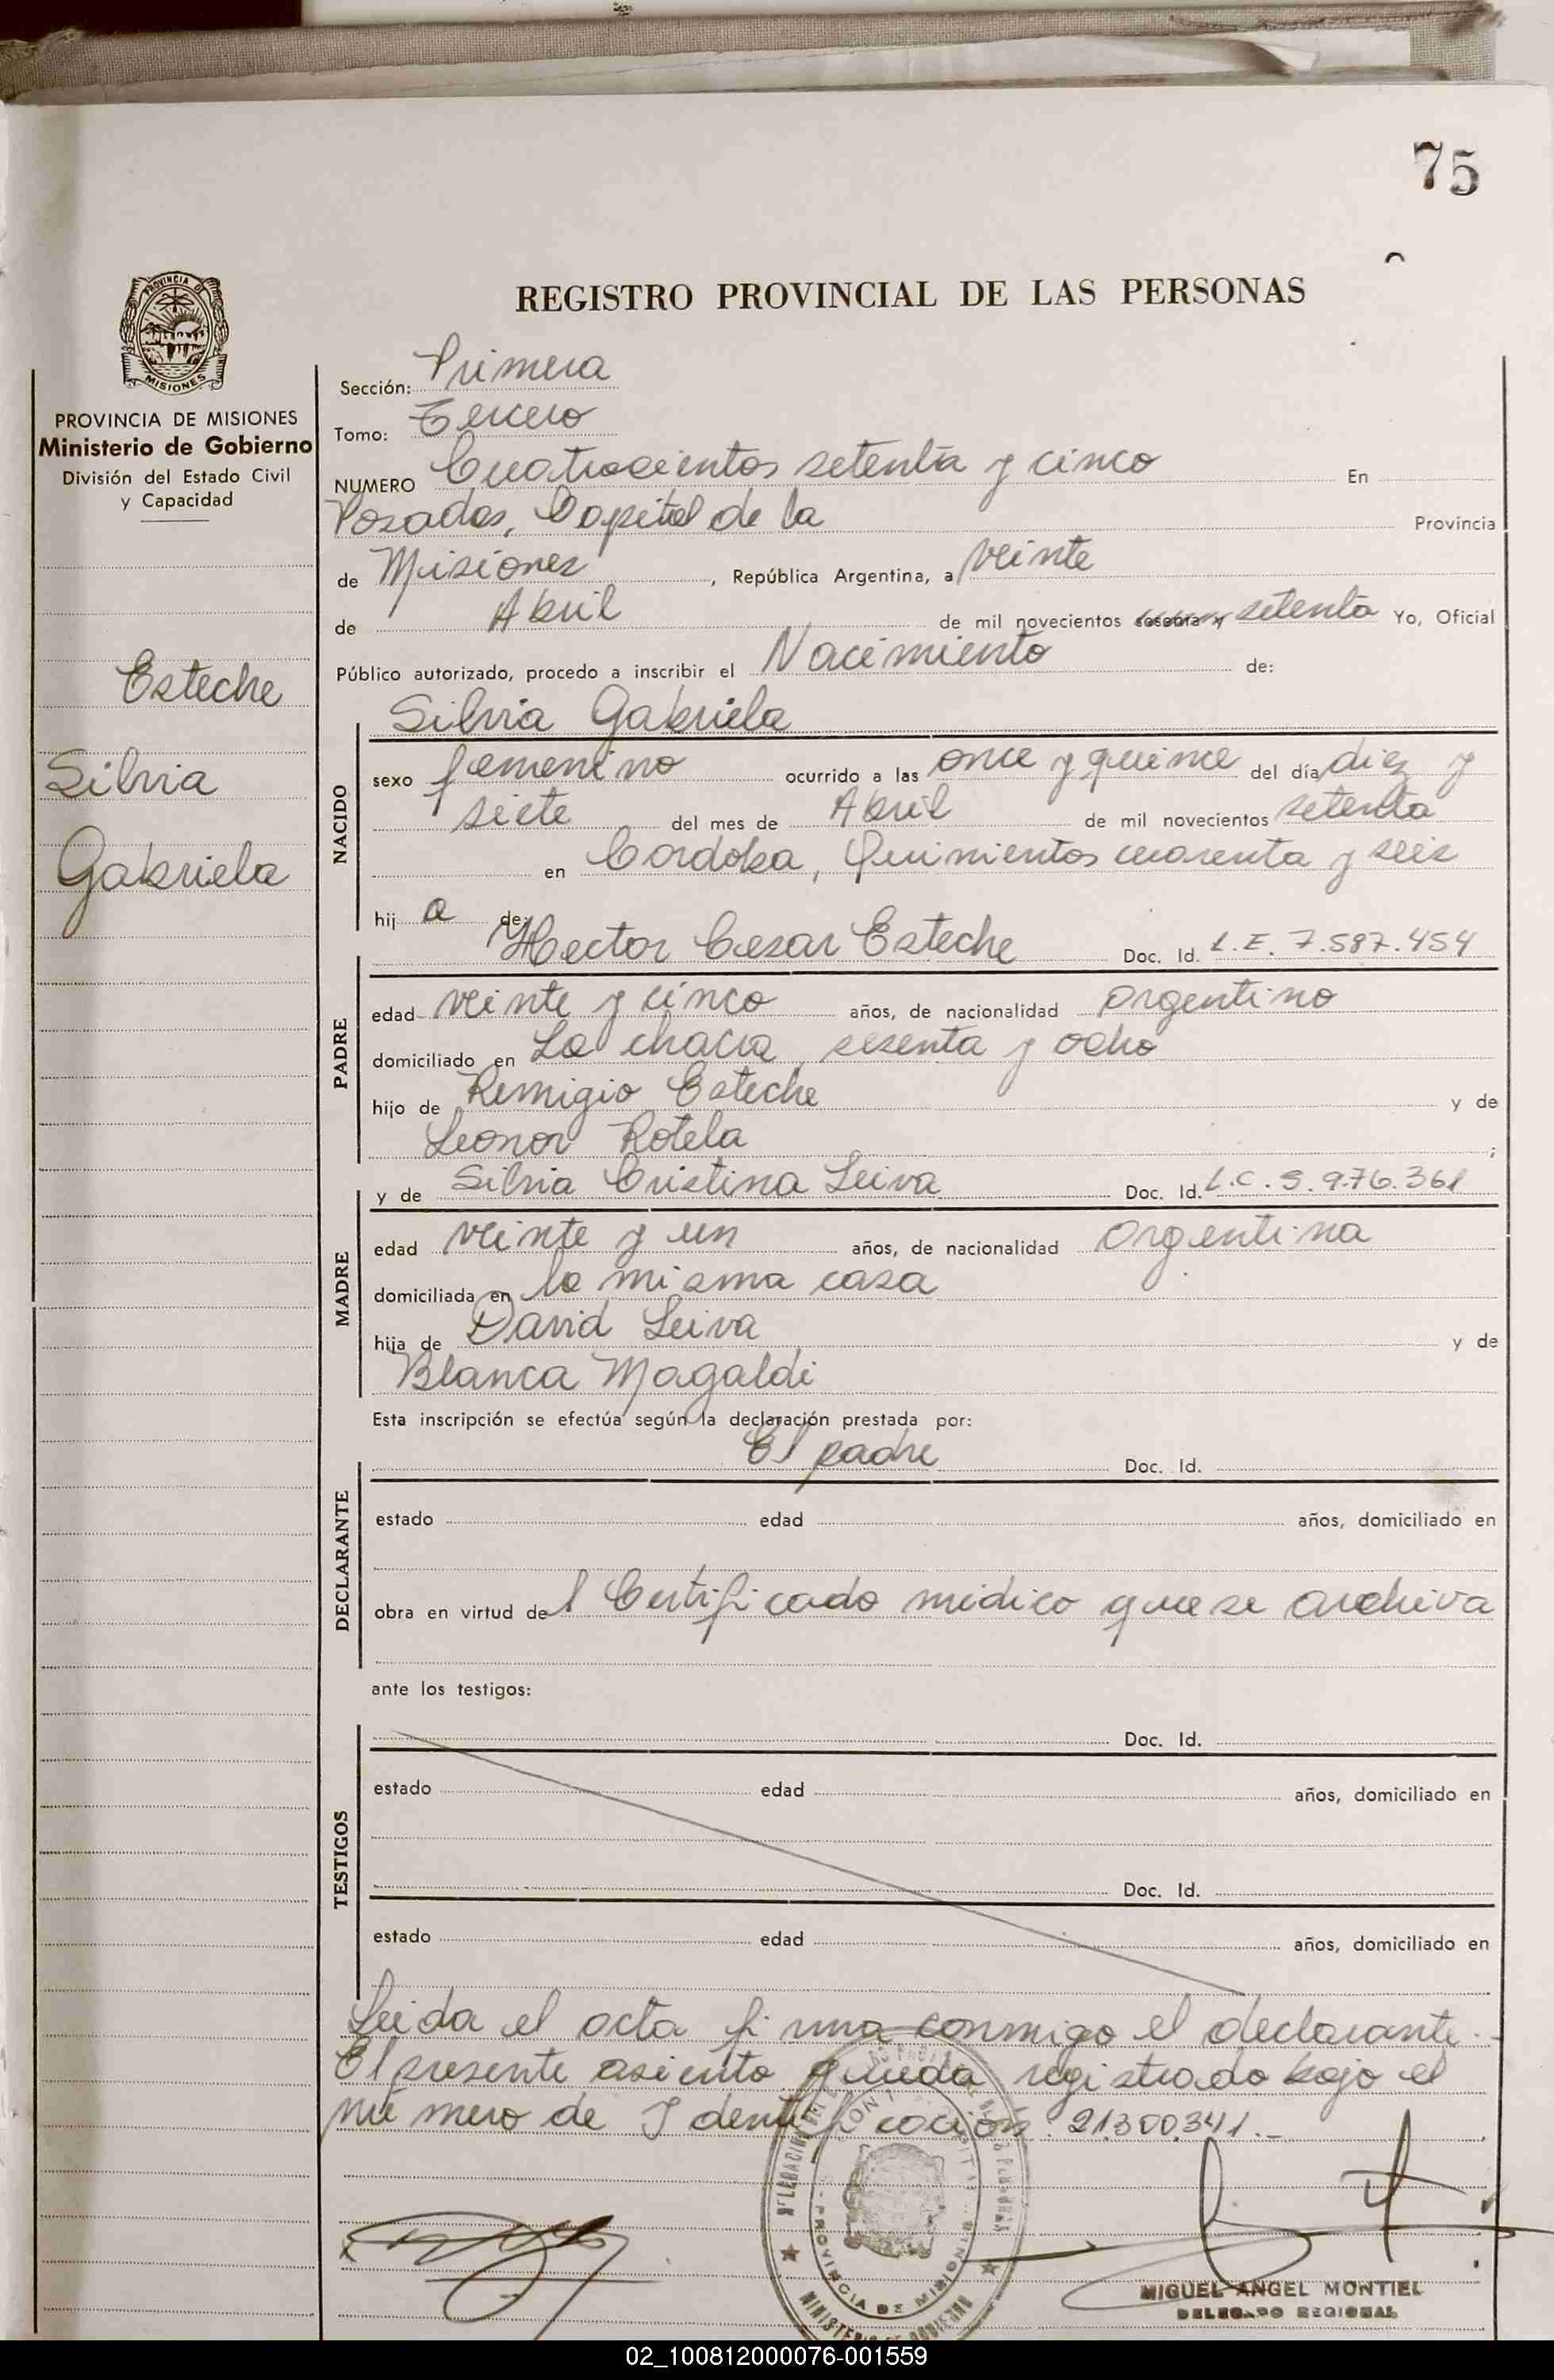 75
REGISTRO PROVINCIAL DE LAS PERSONAS
PROVINCIA DE
MISIONES
PROVINCIA DE MISIONES
Ministerio de Gobierno
División del Estado Civil
y Capacidad
Esteche
Silvia
Gabriela
Sección: Primera
Tomo: Tercero
NUMERO Cuatrocientos setenta y cinco En
Posadas, Capital de la Provincia
de Misiones, República Argentina, a veinte
de Abril de mil novecientos sesenta y setenta Yo, Oficial
Público autorizado, procedo a inscribir el Nacimiento de:
Silvia Gabriela
NACIDO
sexo femenino ocurrido a las once y quince del día diez y
siete del mes de Abril de mil novecientos setenta
en Cordoba, Quinientos cuarenta y seis
hij a de
Hector Cesar Esteche Doc. Id. L.E. 7.587.454
PADRE
edad veinte y cinco años, de nacionalidad argentino
domiciliado en La chacra sesenta y ocho
hijo de Remigio Esteche y de
Leonor Rotela ;
y de Silvia Cristina Leiva Doc. Id. L.C. 5.976.361
MADRE
edad veinte y un años, de nacionalidad argentina
domiciliada en la misma casa
hija de David Leiva y de
Blanca Magaldi
Esta inscripción se efectúa según la declaración prestada por:
El padre Doc. Id.
DECLARANTE
estado edad años, domiciliado en
obra en virtud del Certificado médico que se archiva
ante los testigos:
Doc. Id.
TESTIGOS
estado edad años, domiciliado en
Doc. Id.
estado edad años, domiciliado en
Leida el acta firma conmigo el declarante.-
El presente asiento queda registrado bajo el
número de Identificación: 21.300.341.-
PROVINCIA DE MISIONES
MINISTERIO DE GOBIERNO
MIGUEL ANGEL MONTIEL
DELEGADO REGIONAL
02_100812000076-001559